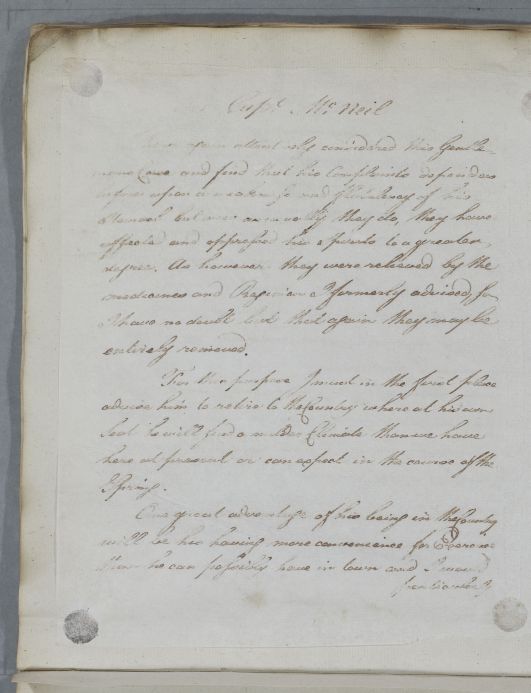 Capt. McNeil
I have again attentively considered this Gentle-
mans Case and find that his Complaints depend as
before upon a weakness and flatulency of his
Stomach but even as usually they do, they have
affected and oppressed his spirits to a greater
degree. As however they were relieved by the
medicines and Regimen I formerly advised, so
I have no doubt but that again they may be
entirely removed.
For this purpose I must in the first place
advise him to retire to the Country where at his own
Seat he will find a milder Climate than we have
here at present or can expect in the course of the
Spring.
One great advantage of his being in the Country
will be his having more convenience for Exercise
than he can possibly have in town and I would
particularly